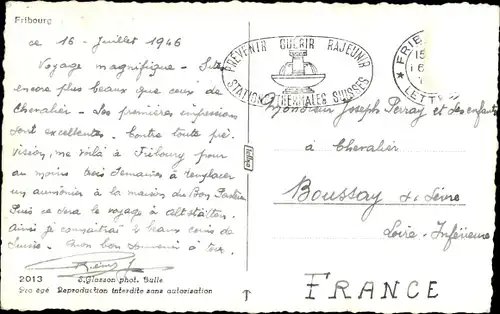 Fribourg
ce 16 - Juillet 1946
Voyage magnifique - Sites
encore plus beaux que ceux de
Chevalier. Les premières impressions
sont excellentes. Contre toute pré-
vision, me voilà à Fribourg pour
au moins trois semaines à remplacer
un aumônier à la maison du Bon Pasteur
Puis ce sera le voyage à Altstätten.
Ainsi je connaîtrai 2 beaux coins de
Suisse. Mon bon souvenir à tous.
2013
S. Glasson phot. Bulle
Reproduction interdite sans autorisation
PRÉVENIR GUÉRIR RAJEUNIR
STATIONS THERMALES SUISSES
LETTER
Monsieur Joseph Perray et ses enfants
à Chevalier
Boussay s. Sèvre
Loire-Inférieure
FRANCE